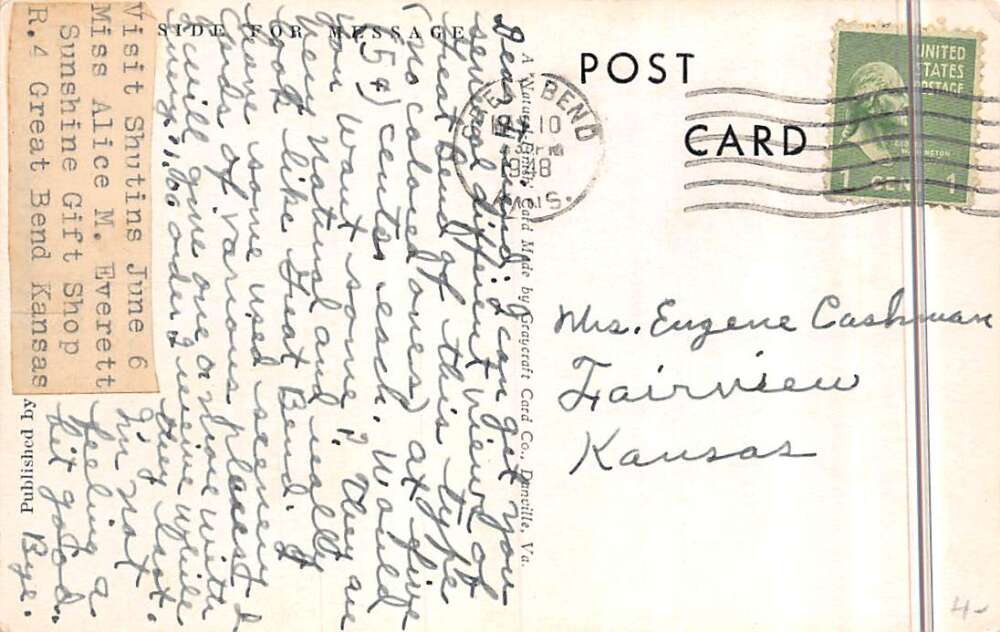 SIDE FOR MESSAGE
POST
CARD
GREAT BEND
10
1948
KANS.
UNITED
STATES
POSTAGE
1 CENT 1
Mrs. Eugene Cashman
Fairview
Kansas
A "Natural Finish" Card Made by Graycraft Card Co., Danville, Va.
Published by
Visit Shutins June 6
Miss Alice M. Everett
Sunshine Gift Shop
R.4 Great Bend Kansas
Dear Friend: I can get you
several different views of
Great Bend of this type
(no colored ones) at five
(5¢) cents each. Would
you want some? They are
very natural and really
look like Great Bend. I
have some used scenery
cards of various places I
will give one or more with
every $1.00 order I receive while
they last.
I'm not
feeling a
bit good.
Bye.
4-